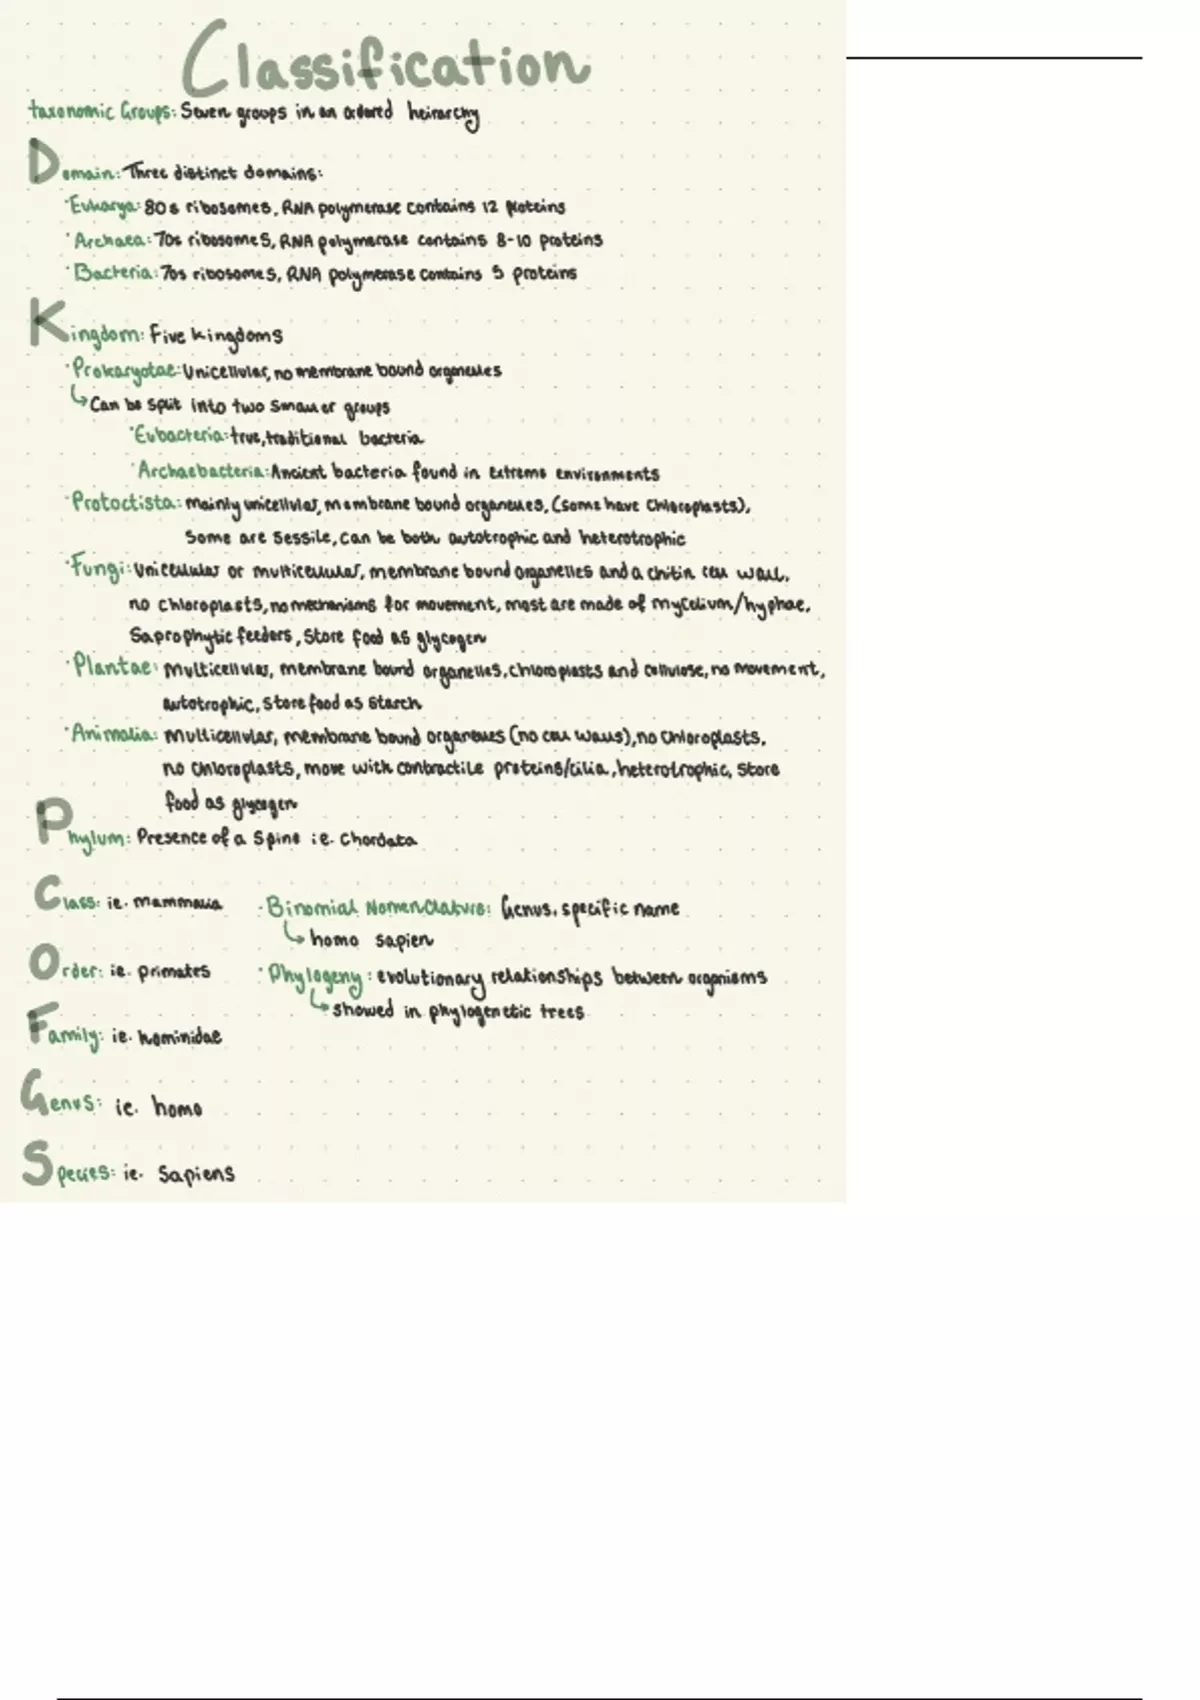 Classification
taxonomic Groups: Seven groups in an ordered heirarchy
Domain: Three distinct domains:
·Eukarya: 80s ribosomes, RNA polymerase contains 12 proteins
·Archaea: 70s ribosomes, RNA polymerase contains 8-10 proteins
·Bacteria: 70s ribosomes, RNA polymerase contains 5 proteins
Kingdom: Five kingdoms
·Prokaryotae: Unicellular, no membrane bound organelles
↳Can be split into two smaller groups
·Eubacteria: true, traditional bacteria
·Archaebacteria: Ancient bacteria found in extreme environments
·Protoctista: mainly unicellular, membrane bound organelles, (some have chloroplasts),
some are sessile, can be both autotrophic and heterotrophic
·Fungi: Unicellular or multicellular, membrane bound organelles and a chitin cell wall,
no chloroplasts, no mechanisms for movement, most are made of mycelium/hyphae,
Saprophytic feeders, store food as glycogen
·Plantae: Multicellular, membrane bound organelles, chloroplasts and cellulose, no movement,
autotrophic, store food as starch
·Animalia: Multicellular, membrane bound organelles (no cell walls), no chloroplasts,
no chloroplasts, move with contractile proteins/cilia, heterotrophic, store
food as glycogen
Phylum: Presence of a spine ie. Chordata
Class: ie. mammalia
·Binomial Nomenclature: Genus, specific name
↳homo sapien
Order: ie. primates
·Phylogeny: evolutionary relationships between organisms
↳showed in phylogenetic trees
Family: ie. hominidae
Genus: ie. homo
Species: ie. Sapiens